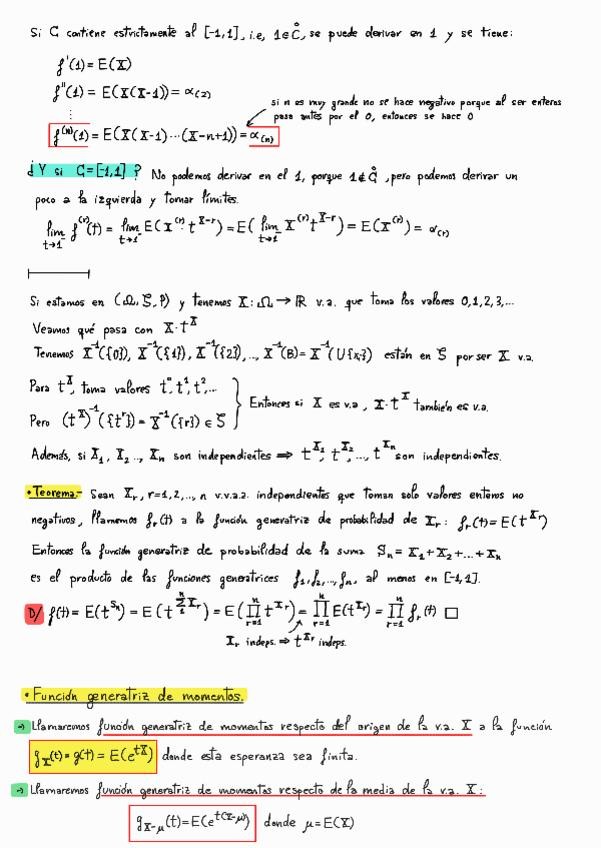 Si C contiene estrictamente al [-1,1], i.e, 1∈C̊, se puede derivar en 1 y se tiene:
f'(1) = E(X)
f''(1) = E(X(X-1)) = α₍₂₎
⋮
si n es muy grande no se hace negativo porque al ser enteros
pasa antes por el 0, entonces se hace 0
f⁽ⁿ⁾(1) = E(X(X-1)⋯(X-n+1)) = α₍ₙ₎
¿Y si C=[-1,1]? No podemos derivar en el 1, porque 1∉C̊, pero podemos derivar un
poco a la izquierda y tomar límites.
lim_{t→1⁻} f⁽ʳ⁾(t) = lim_{t→1⁻} E(X⁽ʳ⁾ t^{X-r}) = E(lim_{t→1⁻} X⁽ʳ⁾ t^{X-r}) = E(X⁽ʳ⁾) = α₍ᵣ₎
Si estamos en (Ω, ζ, P) y tenemos X: Ω → ℝ v.a. que toma los valores 0,1,2,3,...
Veamos qué pasa con X·t^X
Tenemos X⁻¹({0}), X⁻¹({1}), X⁻¹({2}), .., X⁻¹(B) = X⁻¹(U{xᵢ}) están en ζ por ser X v.a.
Para t^X, toma valores t⁰, t¹, t²,...
Pero (t^X)⁻¹({tʳ}) = X⁻¹({r}) ∈ ζ
Entonces si X es v.a, X·t^X también es v.a.
Además, si X₁, X₂ .., Xₙ son independientes ⟹ t^{X₁}, t^{X₂}, ..., t^{Xₙ} son independientes.
• Teorema.- Sean Xᵣ, r=1,2,.., n v.v.a.a. independientes que toman solo valores enteros no
negativos, llamemos fᵣ(t) a la función generatriz de probabilidad de Xᵣ: fᵣ(t)=E(t^{Xᵣ})
Entonces la función generatriz de probabilidad de la suma Sₙ = X₁+X₂+...+Xₙ
es el producto de las funciones generatrices f₁,f₂,..,fₙ, al menos en [-1,1].
D/ f(t) = E(t^{Sₙ}) = E(t^{∑₁ⁿ Xᵣ}) = E(∏_{r=1}^n t^{Xᵣ}) = ∏_{r=1}^n E(t^{Xᵣ}) = ∏_{r=1}^n fᵣ(t) □
Xᵣ indeps. ⟹ t^{Xᵣ} indeps.
• Función generatriz de momentos.
→ Llamaremos función generatriz de momentos respecto del origen de la v.a. X a la función
g_X(t) = g(t) = E(e^{tX}) donde esta esperanza sea finita.
→ Llamaremos función generatriz de momentos respecto de la media de la v.a. X:
g_{X-μ}(t) = E(e^{t(X-μ)}) donde μ=E(X)